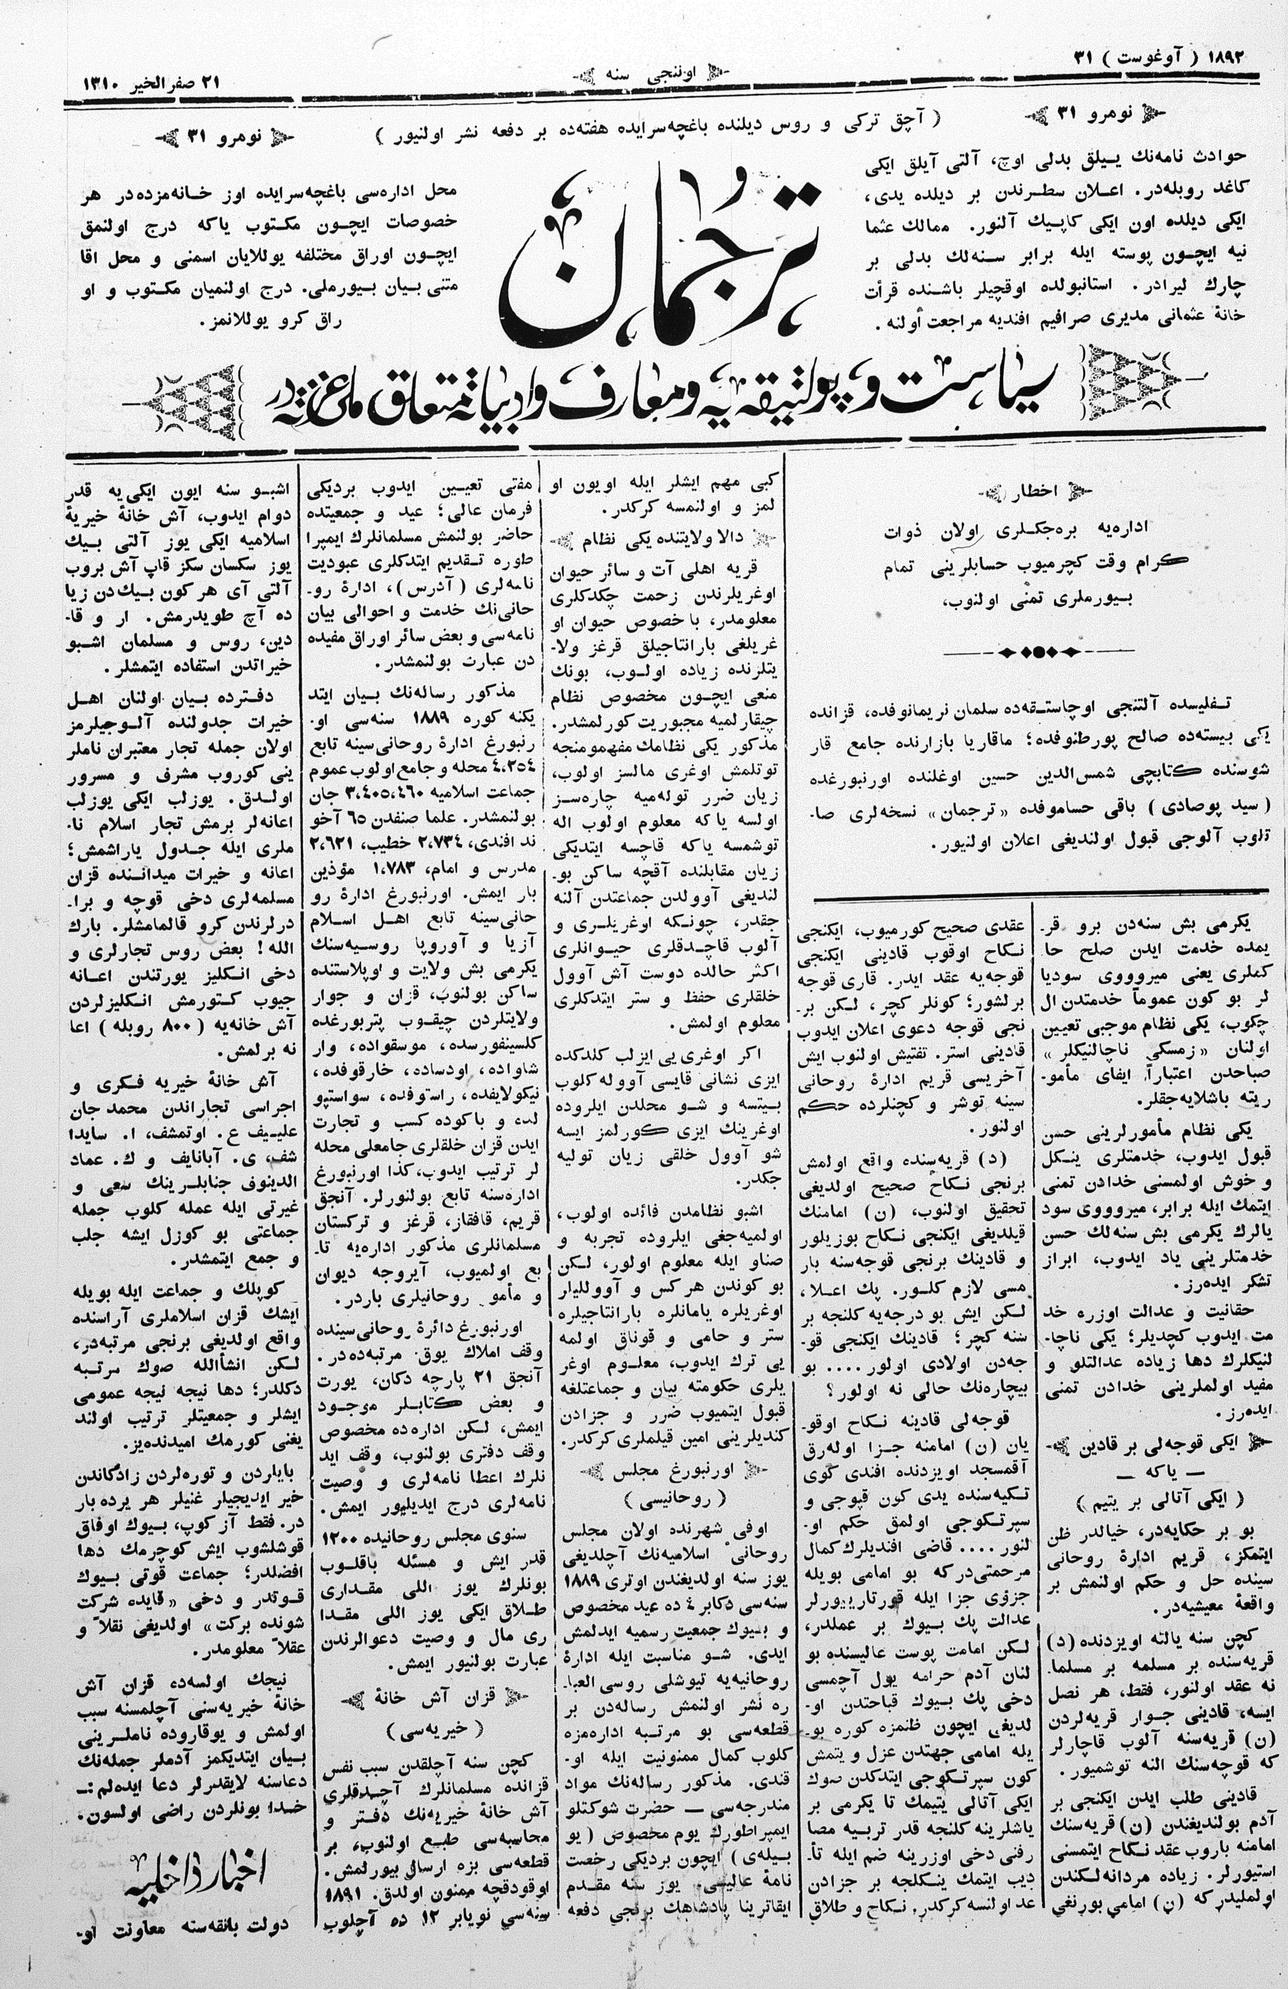 ١٨٩٢ ( آوغوست ) ٣١
اوننجی سنه
٢١ صفرالخیر ١٣١٠
نومرو ٣١
( آچق ترکی و روس دیلنده باغچه‌سرایده هفته‌ده بر دفعه نشر اولنیور )
نومرو ٣١
حوادث نامه‌نك ییلق بدلی اوچ، آلتی آیلق ایکی
کاغد روبله‌در. اعلان سطرندن بر دیلده یدی،
ایکی دیلده اون ایکی کاپیك آلنور. ممالك عثما
نیه ایچون پوسته ایله برابر سنه‌لك بدلی بر
چارك لیرادر. استانبولده اوقچیلر باشنده قرأت
خانهٔ عثمانی مدیری صرافیم افندیه مراجعت أولنه.
ترجمان
محل اداره‌سی باغچه‌سرایده اوز خانه‌مزده‌در هر
خصوصات ایچون مکتوب یاکه درج اولنمق
ایچون اوراق مختلفه یوللایان اسمنی و محل اقا
متنی بیان بیورملی. درج اولنمیان مکتوب و او
راق کرو یوللانمز.
سیاست و پولتیقه‌یه و معارف و ادبیاته متعلق ملی غزته‌در
اخطار
اداره‌یه بره‌جکلری اولان ذوات
کرام وقت کچرمیوب حسابلرینی تمام
بیورملری تمنی اولنوب،
تفلیسده آلتنجی اوچاستقه‌ده سلمان نریمانوفده، قزانده
یکی بیسته‌ده صالح پورطنوفده؛ ماقاریا بازارنده جامع قار
شوسنده کتابچی شمس‌الدین حسین اوغلنده اورنبورغده
( سید پوصادی ) باقی حساموفده «ترجمان» نسخه‌لری صا-
تلوب آلوجی قبول اولندیغی اعلان اولنیور.
یکرمی بش سنه‌دن برو قر-
یمده خدمت ایدن صلح حا
کملری یعنی میروووی سودیا
لر بو کون عموماً خدمتدن ال
چکوب، یکی نظام موجبی تعیین
اولنان «زمسکی ناچالنیکلر»
صباحدن اعتباراً ایفای مأمو-
ریته باشلایه‌جقلر.
یکی نظام مأمورلرینی حسن
قبول ایدوب، خدمتلری ینکل
و خوش اولمسنی خدادن تمنی
ایتمك ایله برابر، میروووی سود
یالرك یکرمی بش سنه‌لك حسن
خدمتلرینی یاد ایدوب، ابراز
تشکر ایده‌رز.
حقانیت و عدالت اوزره خد
مت ایدوب کچدیلر؛ یکی ناچا-
لنیکلرك دها زیاده عدالتلو و
مفید اولملرینی خدادن تمنی
ایده‌رز.
ایکی قوجه‌لی بر قادین
— یاکه —
( ایکی آتالی بر یتیم )
بو بر حکایه‌در، خیالدر ظن
ایتمکز، قریم ادارهٔ روحانی
سینده حل و حکم اولنمش بر
واقعهٔ معیشیه‌در.
کچن سنه یالته اویزدنده (د)
قریه‌سنده بر مسلمه بر مسلما-
نه عقد اولنور، فقط، هر نصل
ایسه، قادینی جوار قریه‌لردن
(ن) قریه‌سنه آلوب قاچارلر
که قوجه‌سنك النه توشمیور.
قادینی طلب ایدن ایکنجی بر
آدم بولندیغندن (ن) قریه‌سنك
امامنه باروب عقد نکاح ایتمسنی
استیورلر. زیاده مردانه‌لکندن
اولملیدر که (ن) امامی بورنغی
عقدی صحیح کورمیوب، ایکنجی
نکاح اوقوب قادینی ایکنجی
قوجه‌یه عقد ایدر. قاری قوجه
برلشور؛ کونلر کچر، لکن بر-
نجی قوجه دعوی اعلان ایدوب
قادینی استر. تفتیش اولنوب ایش
آخریسی قریم ادارهٔ روحانی
سینه توشر و کچنلرده حکم
اولنور.
(د) قریه‌سنده واقع اولمش
برنجی نکاح صحیح اولدیغی
تحقیق اولنوب، (ن) امامنك
قیلدیغی ایکنجی نکاح بوزیلور
و قادینك برنجی قوجه‌سنه بار
مسی لازم کلور. پك اعلا،
لکن ایش بو درجه‌یه کلنجه بر
سنه کچر؛ قادینك ایکنجی قو-
جه‌دن اولادی اولور.... بو
بیچاره‌نك حالی نه اولور؟
قوجه‌لی قادینه نکاح اوقو-
یان (ن) امامنه جزا اوله‌رق
آقمسجد اویزدنده افندی کوی
تکیه‌سنده یدی کون قپوجی و
سپرتکوجی اولمق حکم او-
لنور.... قاضی افندیلرك کمال
مرحمتی‌در که بو امامی بویله
جزؤی جزا ایله قورتاریورلر
عدالت پك بیوك بر عملدر،
لکن امامت پوست عالیسنده بو
لنان آدم حرامه یول آچمسی
دخی پك بیوك قباحتدن او-
لدیغی ایچون ظنمزه کوره بو-
یله امامی جهتدن عزل و یتمش
کون سپرتکوجی ایتدکدن صوك
ایکی آتالی یتیمك تا یکرمی بر
یاشلرینه کلنجه قدر تربیه مصا
رفنی دخی اوزرینه ضم ایله تأ-
دیب ایتمك ینکلجه بر جزادن
عد اولنسه کرکدر. نکاح و طلاق
کبی مهم ایشلر ایله اویون او
لمز و اولنمسه کرکدر.
دالا ولایتنده یکی نظام
قریه اهلی آت و سائر حیوان
اوغریلرندن زحمت چکدکلری
معلومدر، باخصوص حیوان او
غریلغی بارانتاجیلق قرغز ولا-
یتلرنده زیاده اولوب، بونك
منعی ایچون مخصوص نظام
چیقارلمیه مجبوریت کورلمشدر.
مذکور یکی نظامك مفهومونجه
توتلمش اوغری مالسز اولوب،
زیان ضرر توله‌میه چاره‌سز
اولسه یاکه معلوم اولوب اله
توشمسه یاکه قاچسه ایتدیکی
زیان مقابلنده آقچه ساکن بو-
لندیغی آوولدن جماعتدن آلنه
جقدر، چونکه اوغریلری و
آلوب قاچدقلری حیوانلری
اکثر حالده دوست آش آوول
خلقلری حفظ و ستر ایتدکلری
معلوم اولمش.
اکر اوغری‌یی ایزلب کلدکده
ایزی نشانی قایسی آووله کلوب
بیتسه و شو محلدن ایلروده
اوغرینك ایزی کورلمز ایسه
شو آوول خلقی زیان تولیه
جکدر.
اشبو نظامدن فائده اولوب،
اولمیه‌جغی ایلروده تجربه و
صناو ایله معلوم اولور، لکن
بو کوندن هرکس و آووللیار
اوغریلره یامانلره بارانتاجیلره
ستر و حامی و قوناق اولمه
یی ترك ایدوب، معلوم اوغر
یلری حکومته بیان و جماعتلغه
قبول ایتمیوب ضرر و جزادن
کندیلرینی امین قیلملری کرکدر.
اورنبورغ مجلس
( روحانیسی )
اوفی شهرنده اولان مجلس
روحانی اسلامیه‌نك آچلدیغی
یوز سنه اولدیغندن اوتری ١٨٨٩
سنه‌سی دکابر ٤ ده عید مخصوص
و بیوك جمعیت رسمیه ایدلمش
ایدی. شو مناسبت ایله ادارهٔ
روحانیه‌یه تیوشلی روسی العبا-
ره نشر اولنمش رساله‌دن بر
قطعه‌سی بو مرتبه اداره‌مزه
کلوب کمال ممنونیت ایله او-
قندی. مذکور رساله‌نك مواد
مندرجه‌سی — حضرت شوکتلو
ایمپراطورك یوم مخصوص (یو
بیله‌ی) ایچون بردیکی رخصت
نامهٔ عالیسی. یوز سنه مقدم
ایقاترینا پادشاهك برنجی دفعه
مفتی تعیین ایدوب بردیکی
فرمان عالی؛ عید و جمعیتده
حاضر بولنمش مسلمانلرك ایمپرا
طوره تقدیم ایتدکلری عبودیت
نامه‌لری (آدرس)، ادارهٔ رو-
حانی‌نك خدمت و احوالی بیان
نامه‌سی و بعض سائر اوراق مفیده
دن عبارت بولنمشدر.
مذکور رساله‌نك بیان ایتد
یکنه کوره ١٨٨٩ سنه‌سی او-
رنبورغ ادارهٔ روحانی‌سینه تابع
٤،٢٥٤ محله و جامع اولوب عموم
جماعت اسلامیه ٣،٤٠٥،٤٦٠ جان
بولنمشدر. علما صنفدن ٦٥ آخو
ند افندی، ٢،٧٣٤ خطیب، ٢،٦٢١
مدرس و امام، ١،٧٨٣ مؤذین
بار ایمش. اورنبورغ ادارهٔ رو
حانی‌سینه تابع اهل اسلام
آزیا و آوروپا روسیه‌سنك
یکرمی بش ولایت و اوبلاستنده
ساکن بولنوب، قزان و جوار
ولایتلردن چیقوب پتربورغده
کلسینفورسده، موسقواده، وار
شاواده، اودساده، خارقوفده،
نیکولایفده، راستوفده، سواستپو
لده و باکوده کسب و تجارت
ایدن قزان خلقلری جامعلی محله
لر ترتیب ایدوب، کذا اورنبورغ
اداره‌سنه تابع بولنورلر. آنجق
قریم، قافقاز، قرغز و ترکستان
مسلمانلری مذکور اداره‌یه تا-
بع اولمیوب، آیروجه دیوان
و مأمو روحانیلری باردر.
اورنبورغ دائرهٔ روحانی‌سینده
وقف املاك یوق مرتبه‌ده‌در.
آنجق ٢١ پارچه دکان، یورت
و بعض کتابلر موجود
ایمش، لکن اداره‌ده مخصوص
وقف دفتری بولنوب، وقف اید
نلرك اعطا نامه‌لری و وصیت
نامه‌لری درج ایدیلیور ایمش.
سنوی مجلس روحانیده ١٢٠٠
قدر ایش و مسئله باقلوب
بونلرك یوز اللی مقداری
طلاق ایکی یوز اللی مقدا
ری مال و وصیت دعوالرندن
عبارت بولنیور ایمش.
قزان آش خانهٔ
( خیریه‌سی )
کچن سنه آچلقدن سبب نفس
قزانده مسلمانلرك آچدقلری
آش خانهٔ خیریه‌نك دفتر و
محاسبه‌سی طبع اولنوب، بر
قطعه‌سی بزه ارسال بیورلمش.
اوقودقچه ممنون اولدق. ١٨٩١
سنه‌سی نویابر ١٢ ده آچلوب
اشبو سنه ایون ایکی‌یه قدر
دوام ایدوب، آش خانهٔ خیریهٔ
اسلامیه ایکی یوز آلتی بیك
یوز سکسان سکز قاپ آش بروب
آلتی آی هر کون بیك‌دن زیا
ده آچ طویدرمش. ار و قا-
دین، روس و مسلمان اشبو
خیراتدن استفاده ایتمشلر.
دفترده بیان اولنان اهل
خیرات جدولنده آلوجیلرمز
اولان جمله تجار معتبران ناملر
ینی کوروب مشرف و مسرور
اولدق. یوزلب ایکی یوزلب
اعانه‌لر برمش تجار اسلام نا-
ملری ایله جدول یاراشمش؛
اعانه و خیرات میداننده قزان
مسلمه‌لری دخی قوجه و برا-
درلرندن کرو قالمامشلر. بارك
الله! بعض روس تجارلری و
دخی انکلیز یورتندن اعانه
جیوب کتورمش انکلیزلردن
آش خانه‌یه (٨٠٠ روبله) اعا
نه برلمش.
آش خانهٔ خیریه فکری و
اجراسی تجاراندن محمد جان
علییف ع. اوتمشف، ا. سایدا
شف، ی. آپانایف و ك. عماد
الدینوف جنابلرینك سعی و
غیرتی ایله عمله کلوب جمله
جماعتی بو کوزل ایشه جلب
و جمع ایتمشدر.
کوپلك و جماعت ایله بویله
ایشك قزان اسلاملری آراسنده
واقع اولدیغی برنجی مرتبه‌در،
لکن انشأالله صوك مرتبه
دکلدر؛ دها نیجه نیجه عمومی
ایشلر و جمعیتلر ترتیب اولند
یغنی کورمك امیدنده‌یز.
بایلردن و توره‌لردن زادکاندن
خیر ایدیجیلر غنیلر هر یرده بار
در. فقط آز کوپ، بیوك اوفاق
قوشلشوب ایش کوچرمك دها
افضلدر؛ جماعت قوتی بیوك
قوتدر و دخی «فایده شرکت
شونده برکت» اولدیغی نقلاً و
عقلاً معلومدر.
نیجك اولسه‌ده، قزان آش
خانهٔ خیریه‌سنی آچلمسنه سبب
اولمش و یوقاروده ناملرینی
بیان ایتدیکمز آدملر جمله‌نك
دعاسنه لایقدرلر دعا ایده‌لم:—
خدا بونلردن راضی اولسون.
اخبار داخلیه
دولت بانقه‌سنه معاونت او-